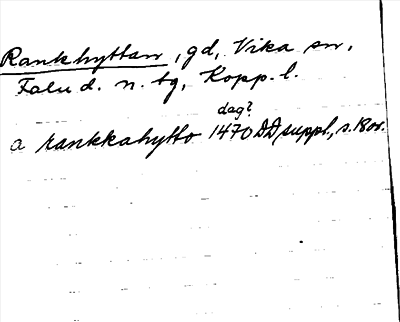 Rankhyttan, gd, Vika sn,
Falu d. n. tg, Kopp. l.
dag?
a rankkahytto 1470 DD suppl, s. 180.